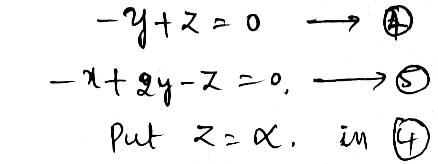 -y+z=0 → ④
-x+2y-z=0, → ⑤
Put z=α. in ④